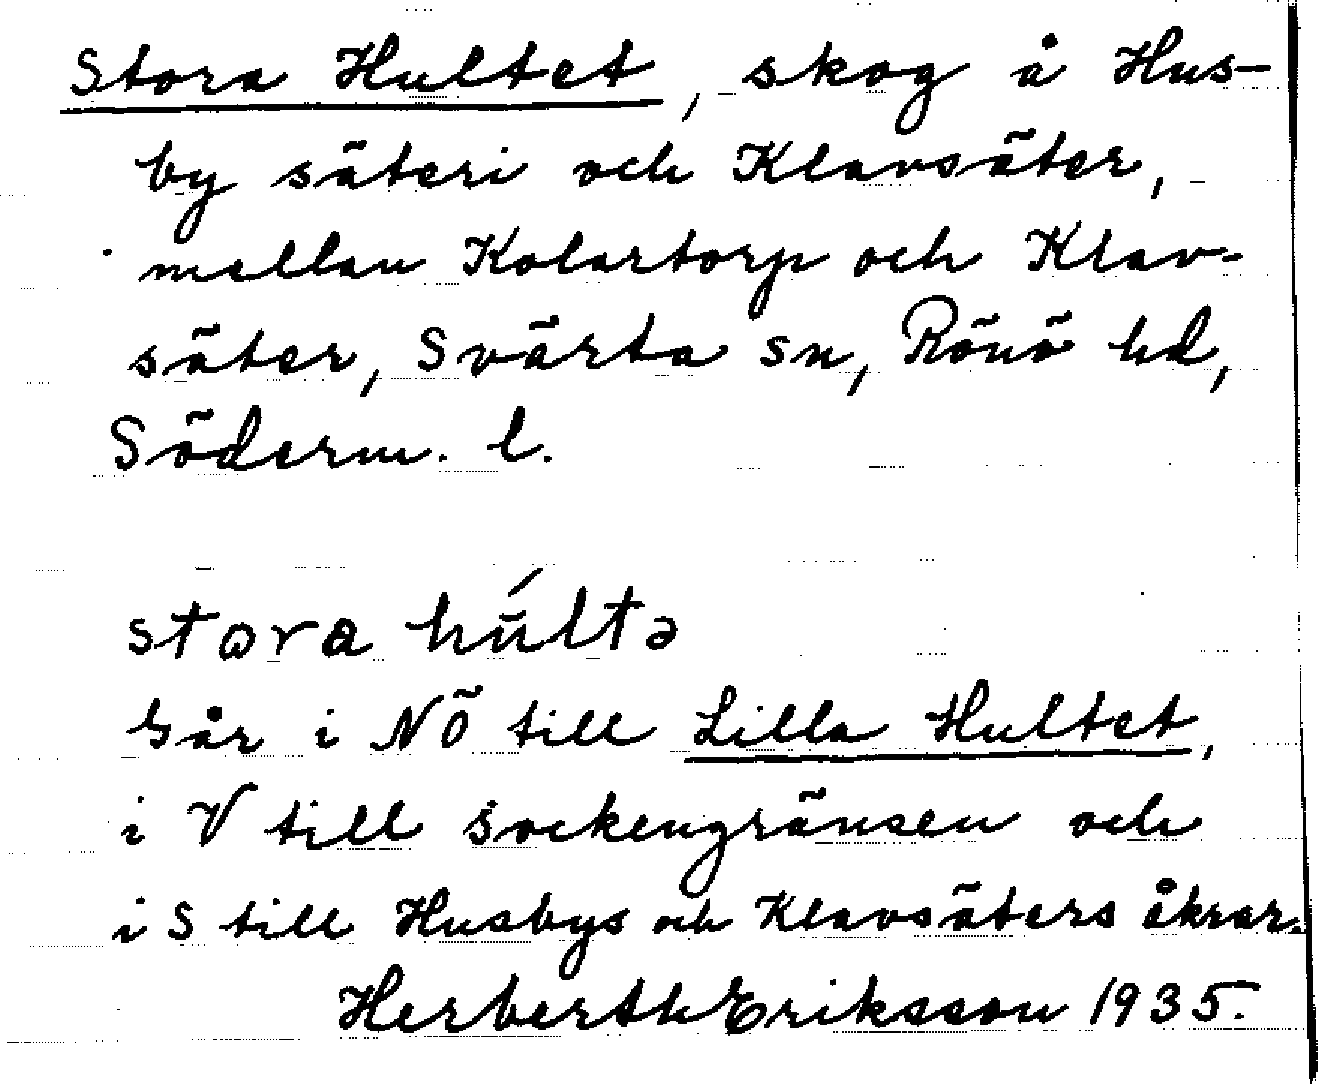 Stora Hultet, skog å Hus-
by säteri och Klavsäter,
mellan Kolartorp och Klav-
säter, Svärta sn, Rönö hd,
Söderm. l.
stora húltə
Går i NÖ till Lilla Hultet,
i V till sockengränsen och
i S till Husbys och Klavsäters åkrar.
Herberth Eriksson 1935.